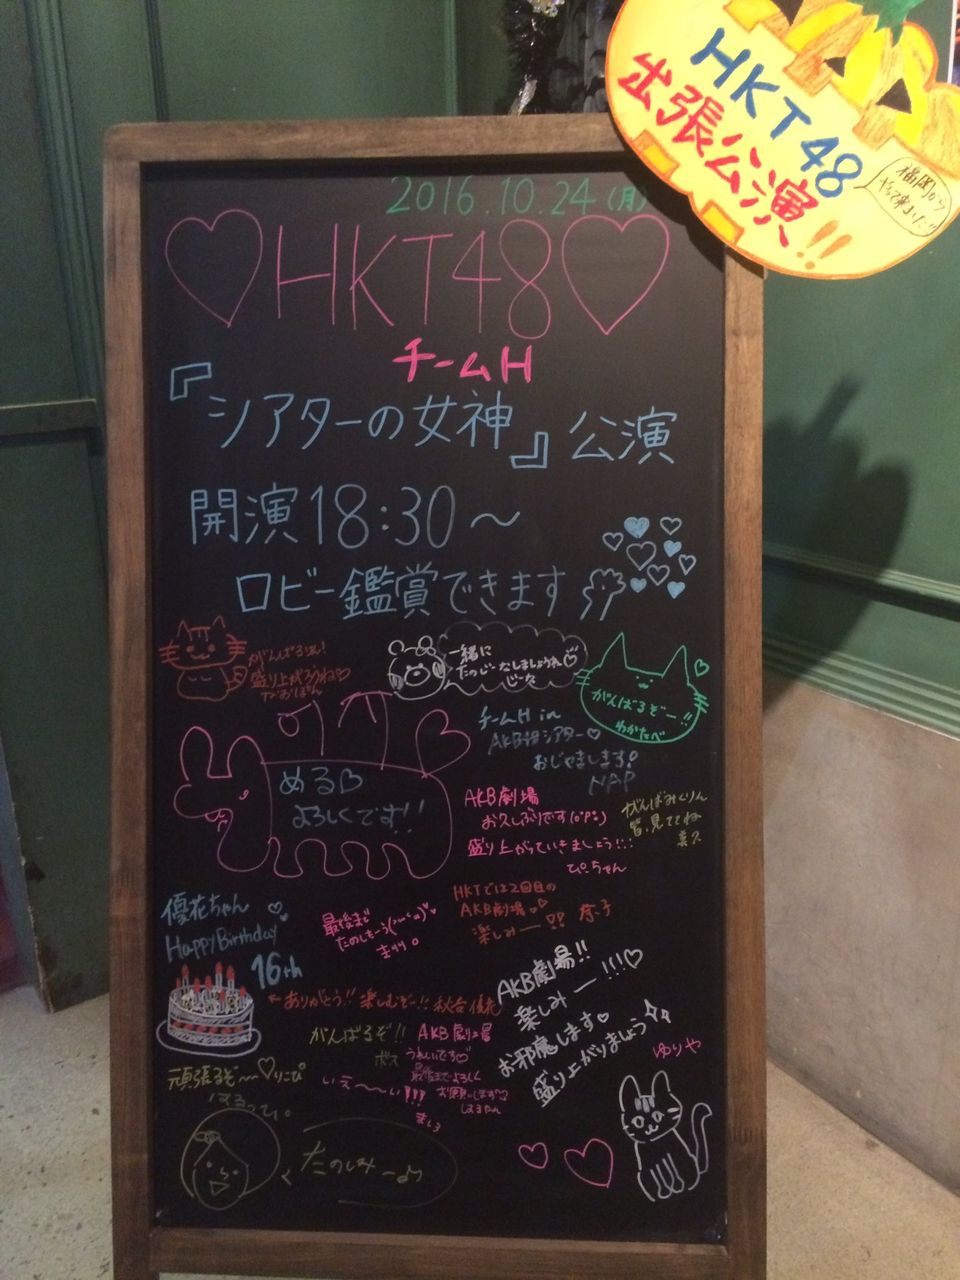 HKT48
出張公演!!
福岡から
やって来ました!!
2016.10.24(月)
♡HKT48♡
チームH
『シアターの女神』公演
開演18:30〜
ロビー鑑賞できます
がんばるぞ!
盛り上がろうね♡
なおぽん
一緒に
たのじーなしましょうね♡
じーな
がんばるぞー!!
わかたべ
チームH in
AKB48シアター♡
おじゃまします!
める♡
よろしくです!!
AKB劇場
お久しぶりです
盛り上がっていきましょう!!!
ぴーちゃん
がんばみくりん
皆、見ててね
優花ちゃん
Happy Birthday
16th
最後まで
たのしもう
HKTでは2回目の
AKB劇場
楽しみー!! 奈子
←ありがとう!! 楽しむぞー!! 秋吉優花
AKB劇場!!
楽しみー!!!♡
お邪魔します♡
盛り上がりましょう
ゆりや
がんばるぞ!!
ボス
AKB劇場
うれしいです♡
最後までよろしく
お願いします♡
しなもん
頑張るぞ〜♡りこぴ
はるってぃ
いえ〜い!!!
たのしみーよ